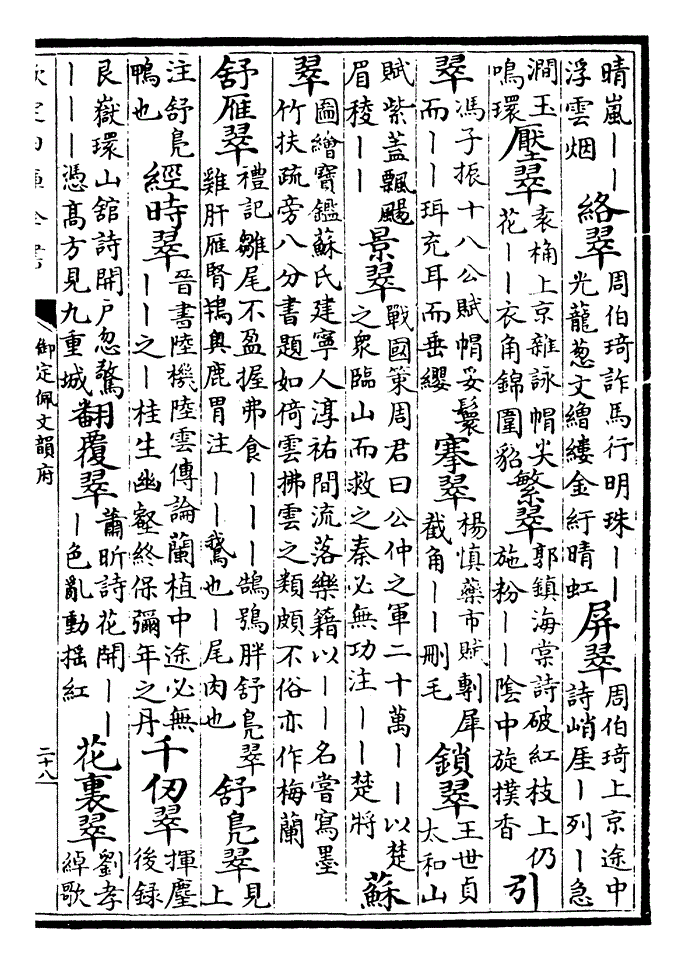 晴嵐丨丨
浮雲烟
絡翠
周伯琦詐馬行明珠丨丨
光蘢葱文繒縷金紆晴虹
屏翠
周伯琦上京途中
詩峭厓丨列丨急
澗玉
鳴環
壓翠
袁桷上京雜詠帽尖
花丨丨衣角錦圍貂
繁翠
郭鎮海棠詩破紅枝上仍
施粉丨丨陰中旋撲香
引
翠
馮子振十八公賦帽妥鬟
而丨丨珥充耳而垂纓
搴翠
楊慎藥市賦剸犀
截角丨丨刪毛
鎖翠
王世貞
太和山
賦紫蓋飄颺
眉稜丨丨
景翠
戰國策周君曰公仲之軍二十萬丨丨以楚
之衆臨山而救之秦必無功注丨丨楚將
蘇
翠
圖繪寶鑑蘇氏建寧人淳祐間流落樂籍以丨丨名嘗寫墨
竹扶疏旁八分書題如倚雲拂雲之類頗不俗亦作梅蘭
舒雁翠
禮記雛尾不盈握弗食丨丨丨鵠鴞胖舒鳧翠
雞肝雁腎鴇奥鹿胃注丨丨鵞也丨尾肉也
舒鳧翠
見
上
注舒鳧
鴨也
經時翠
晉書陸機陸雲傳論蘭植中途必無
丨丨之丨桂生幽壑終保彌年之丹
千仞翠
揮麈
後録
艮嶽環山舘詩開戶忽驚
丨丨丨憑高方見九重城
翻覆翠
蕭昕詩花開丨丨
丨色亂動揺紅
花裏翠
劉孝
綽歌
欽定四庫全書
御定佩文韻府
二十八